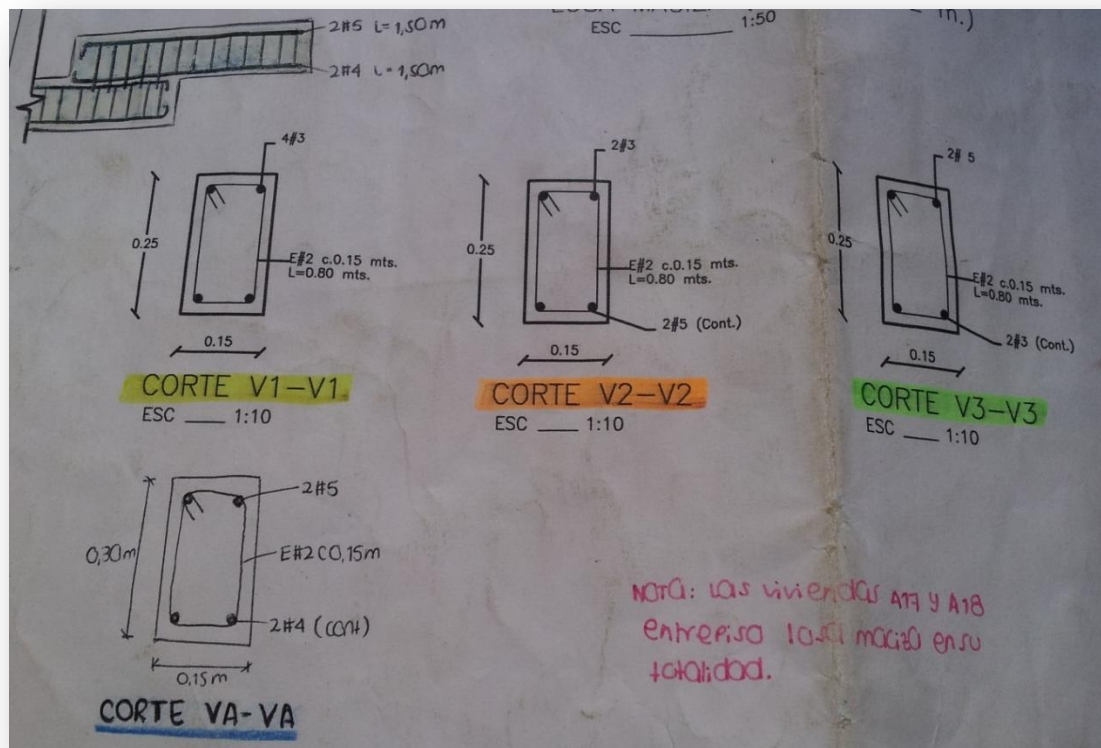 2#5 L=1,50m
2#4 L=1,50m
ESC ____ 1:50
4#3
0.25
E#2 c.0.15 mts.
L=0.80 mts.
0.15
CORTE V1-V1
ESC ___ 1:10
2#3
0.25
E#2 c.0.15 mts.
L=0.80 mts.
2#5 (Cont.)
0.15
CORTE V2-V2
ESC ___ 1:10
2# 5
0.25
E#2 c.0.15 mts.
L=0.80 mts.
2#3 (Cont.)
0.15
CORTE V3-V3
ESC ___ 1:10
2#5
0,30m
E#2 C0,15m
2#4 (cont)
0,15m
CORTE VA-VA
NOTA: Las viviendas A17 y A18
entrepiso losa maciza en su
totalidad.